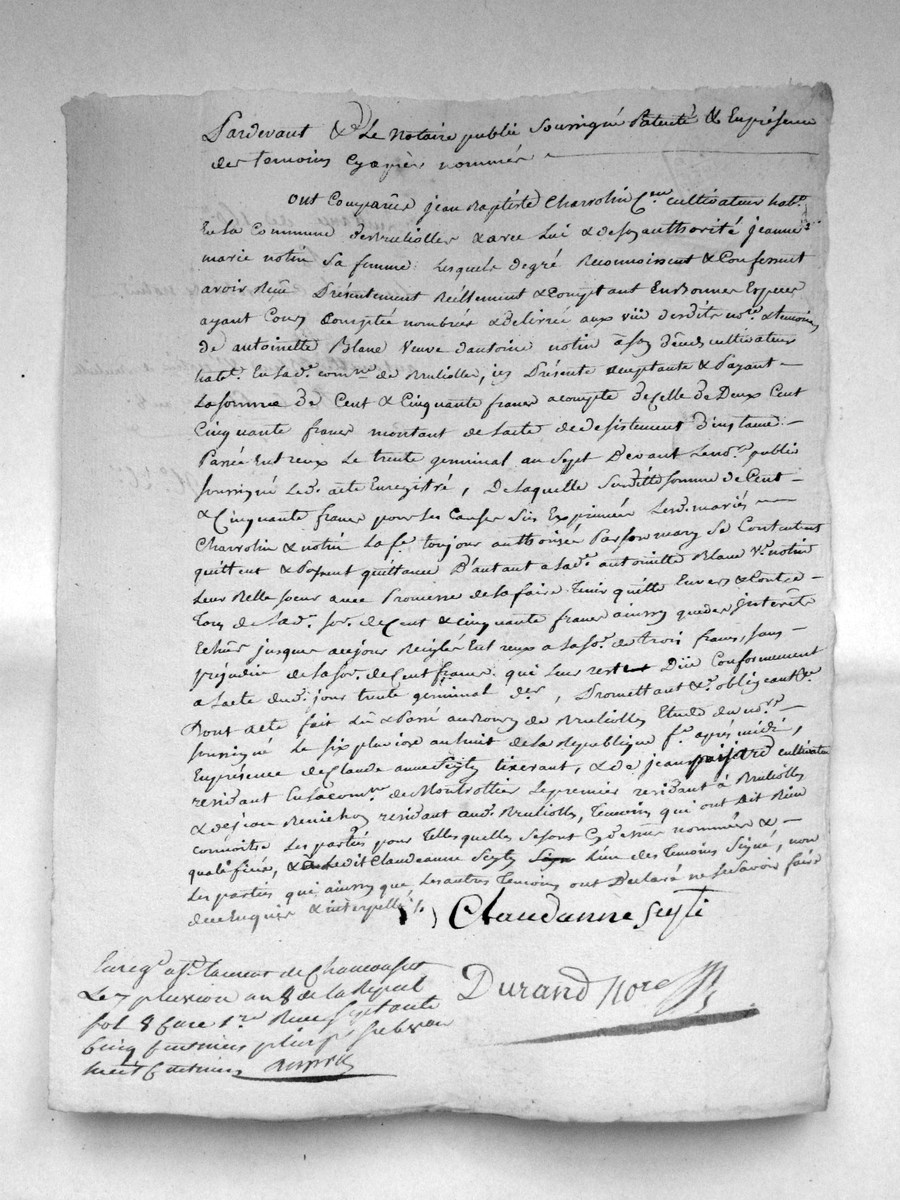 Pardevant &c. Le Notaire public Soussigné Patenté & En présence
des temoins Cy après nommés
ont Comparûs jean Baptiste Charrolin Cen. cultivateur habt.
En la Commune de Brulliolles & avec Lui & de son authorité jeanne
marie notin sa femme Lesquels de gré Reconnoissent & Confessent
avoir Reçû Présentement Réellement & Comptant En Bonnes Especes
ayant Cours Comptées nombrées & delivrées aux vûs desdits nore. & temoins
de antoinette Blanc Veuve d'antoine notin
habt. En lad. comne. de Brulliolles, icy Présente acceptante & Payant
La somme de Cent & Cinquante francs acompte de Celle de Deux Cent
Cinquante francs montant de Lacte de desistement d'instance
Passée Entreux Le trente germinal an Sept Devant Le nore. public
soussigné Led. acte Enregistré, De Laquelle Susditte somme de Cent
& Cinquante francs pour Les Causes Sus Exprimées Lesd. mariés
Charrolin & notin La fe. toujour authorisée Par son mary Se Contentent
quittent & Passent quittance D'autant a Lad. antoinette Blanc Ve. notin
Leur Belle soeur avec Promesse de La faire tenir quitte Envers & Contre
Tous de Lad. so. de Cent & Cinquante francs ainsy que des interêts
Echûs jusques aujour Reiglés Entreux a La so. de trois francs, sans
préjudice de La so. de Cent francs qui Leur reste Dûe Conformement
a Lacte dud. jour trente germinal der., Promettant &c. obligeant &c.
Dont acte fait Lû & Passé au Bourg de Brulliolles Etude du nore.
soussigné Le six pluviose an huit de La République fe. après midi,
En présence de Claude anne Seyty tixerant, & de jean pijard cultivateur
residant En La comne. de Montrottier Le premier residant à Brulliolles
& de jean residant aud. Brulliolles, Temoins qui ont Dit Bien
connoitre Les parties pour Telles quelles se sont Cy dessus nommées &
qualifiées, & Ledit Claudeanne Seyty L'un des Temoins Signé, non
Les parties qui ainsy que Les autres Temoins ont Déclaré ne Le Savoir faire
de ce Enquis & interpellés
Claudanne Seyti
Enregé. a St. Laurent de Chamousset
Le 7 pluviose an 8 de la Répub
fol 8 Case 1re Reçu Septante
Cinq Centimes plus pr. Subvon
Sept Centimes
Durand Nore